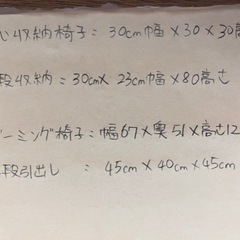 収納椅子=30cm幅×30×30高
段収納=30cm×23cm幅×80高さ
ーミング椅子=幅67×奥51×高さ12
段引出し=45cm×40cm×45cm